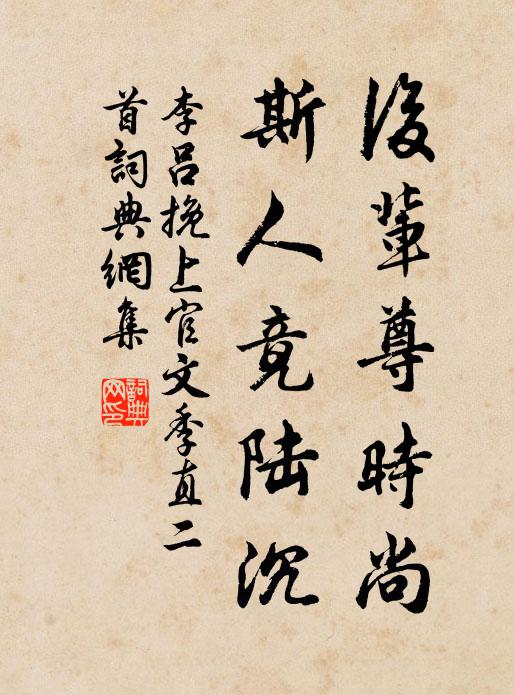 後輩尊時尚
斯人竟陆沉
李吕挽上官文季直二
首詞典網集
詞典網印